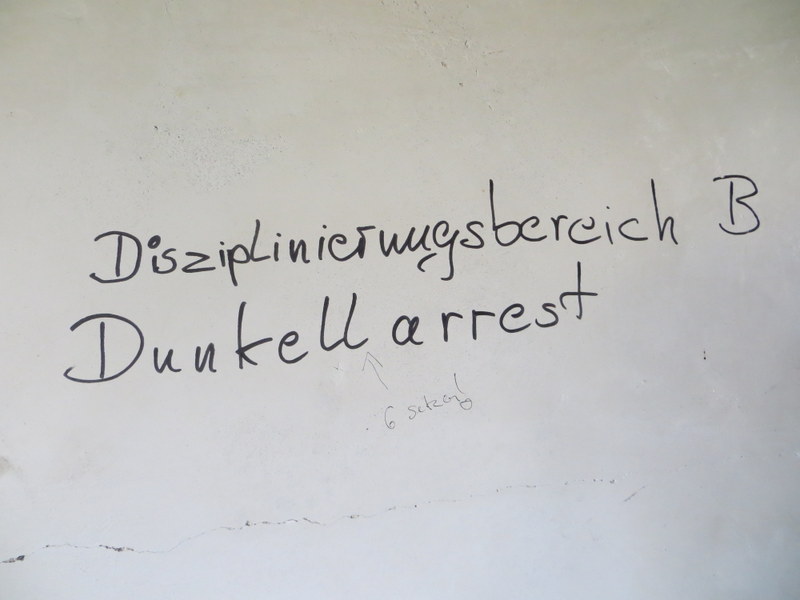 Disziplinierungsbereich B
Dunkell arrest
6 setzen!